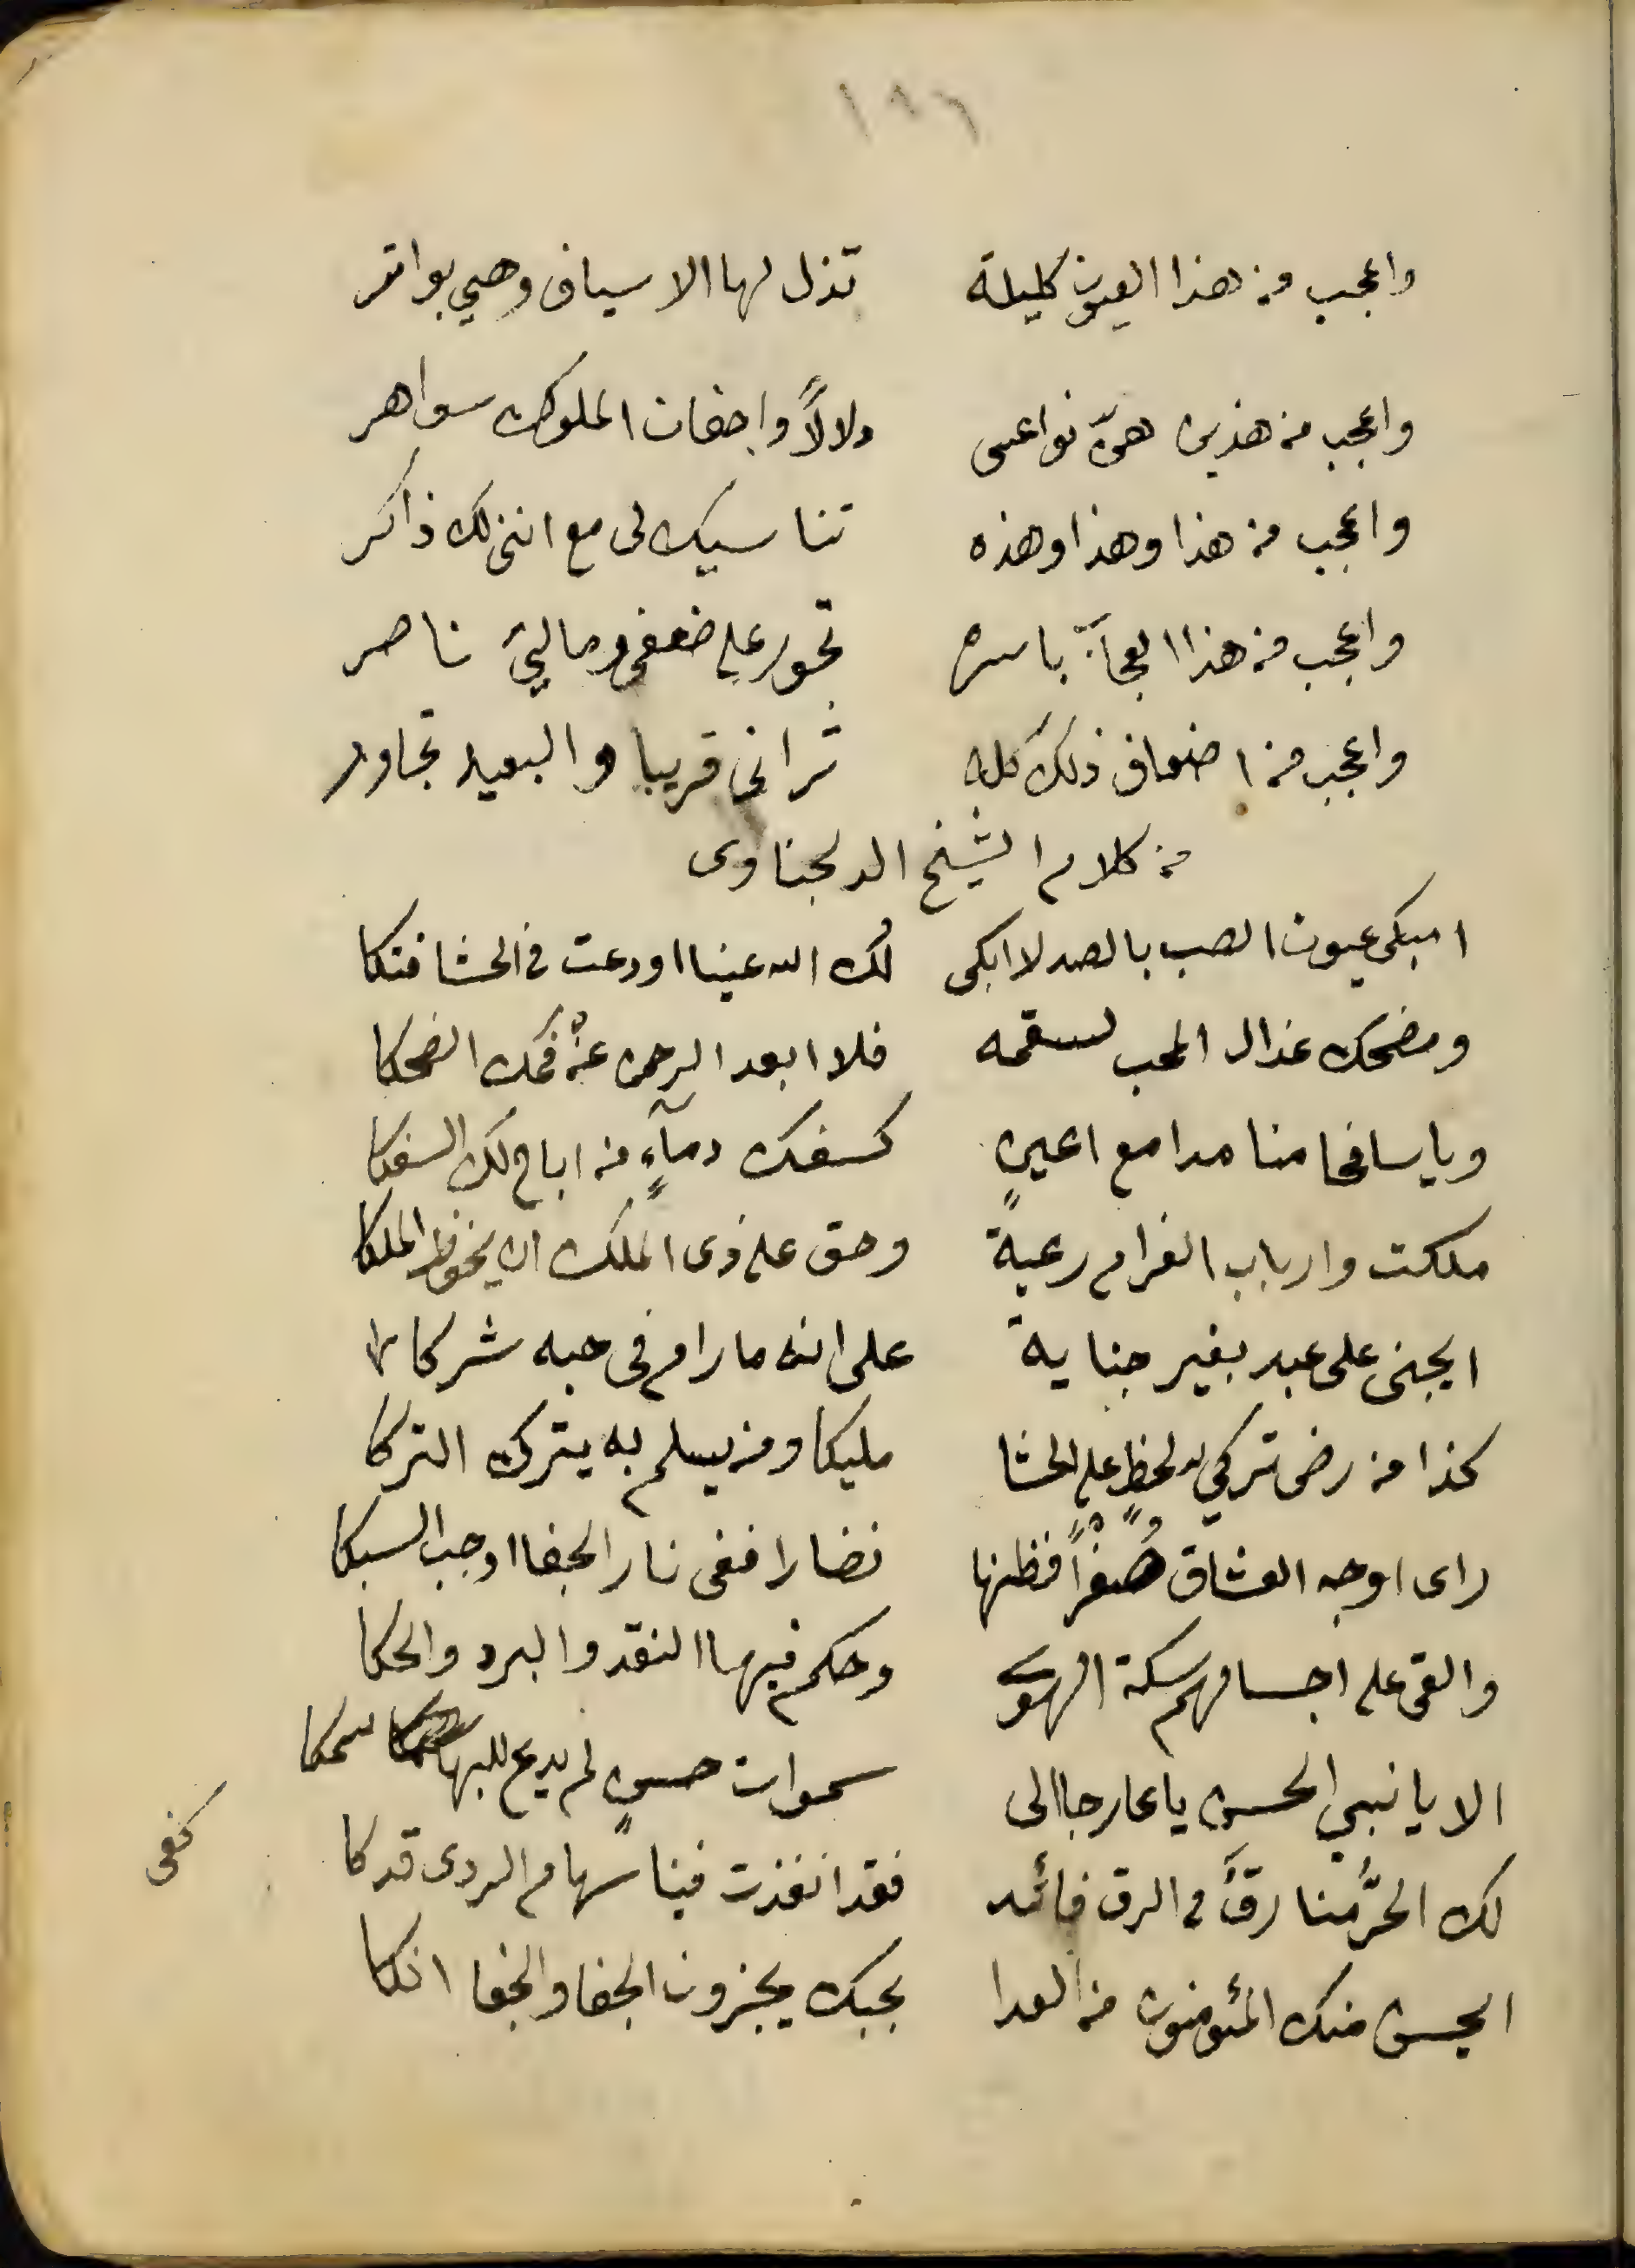 ١٨٦
واعجب من هذا العيون كليلة تذل لها الاسياف وهي بواتر
واعجب من هذين هنّ نواعس دلالاً واجفان الملوك سواهر
واعجب من هذا وهذا وهذه تناسيك لى مع اننى لك ذاكر
واعجب من هذا العجائب باسره تجور على ضعفى وما لي ناصر
واعجب من اضعاف ذلك كله ترانى قريبا والبعيد تجاور
من كلام الشيخ الدلجناوى
امبكى عيون الصب بالصد لا ابكى لك الله عينا اودعت فى الحشا فتكا
ومضحك عذال المحب لسقمه فلا ابعد الرحمن عنْ فمك الضحكا
ويا سافحا منا مدامع اعينٍ كسفك دمآءٍ من اباح لك السفكا
ملكت وارباب الغرام رعية وحق على ذى الملك ان يحفظ الملكا
ايجنى على عبد بغير جناية على انه ما رام فى حبه شركا
كذا من رضى تركي لحظٍ على الحشا مليكا ومن يسلم به يترك التركا
راى اوجه العشاق صُفْراً فظنها نضارا ففى نار الجفا اوجب السبكا
والقى على اجسامهم سكة الهوى وحكم فيها النقد والبرد والحكا
الا يا نبي الحسن يا عارجا الى سموات حسنٍ لم يدع للبها سمكا
لك الحرُّ منا رقَّ فى الرق فائد فقد انفذت فينا سهام الردى قدكا
ايحسن منك المئومنون من العدا بحبك يجزون الجفا والجفا انكا
كفى